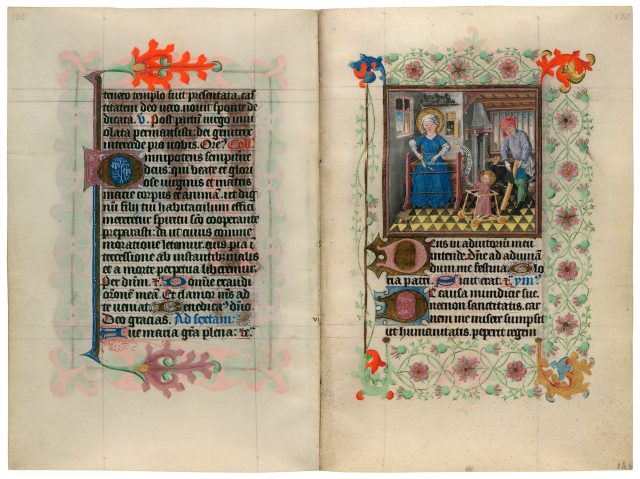 tenero templo fuit presentata, cas
titatem deo veto. novit sponte de
dicata. v. Post partum virgo invi
olata permansisti: dei genitrix
intercede pro nobis. Ore? Coll.
Omnipotens sempiterne
deus, qui beate et glori
ose virginis et matris
marie corpus et animam. ut dig
num filii tui habitaculum effici
mereretur spiritu sco cooperante
preparasti: da ut cuius comme
moratione letamur. eius pia in
tercessione ab instantibus malis
et a morte perpetua liberemur.
Per dnm. Domine exaudi
oronem meam. Et clamor ms ad
te veniat. Benedicam9 dno
Deo gracias. Ad sextam:
Ave maria gra plena: tc.
Deus in adiutorium meu
intende. Dne ad adiuvan
dum me festina. Glo
ria patri. Sicut erat. ym9
Te causa mundicie suc
nenon sanctitatis. car
nem une miser sumpsit
ut humanitatis. peperit regem